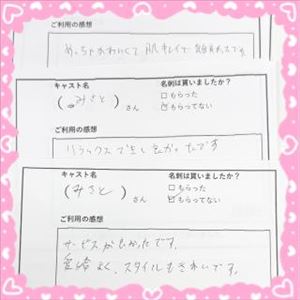 ご利用の感想
めっちゃかわいくて肌キレイで
キャスト名
名刺は貰いましたか?
(みさと)さん
□もらった
□もらってない
ご利用の感想
リラックスで
キャスト名
名刺は貰いましたか?
(みさと)さん
□もらった
□もらってない
ご利用の感想
サービスが良かったです。
愛嬌よく、スタイルもきれいです。